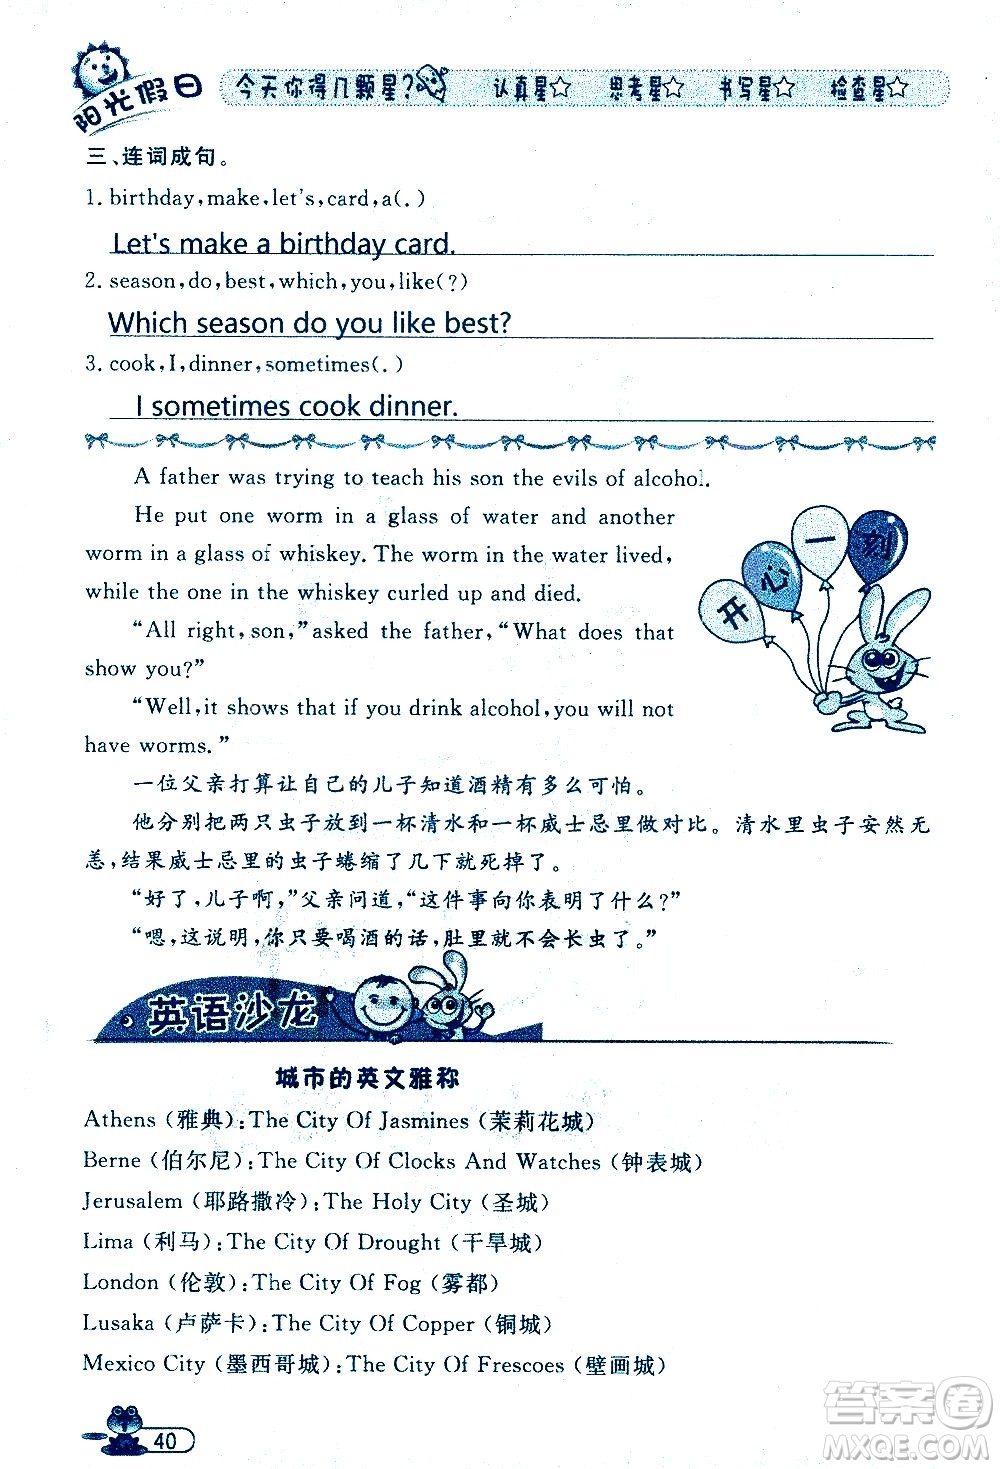 阳光假日
今天你得几颗星? 认真星☆ 思考星☆ 书写星☆ 检查星☆
三、连词成句。
1. birthday,make,let's,card,a(.)
Let's make a birthday card.
2. season,do,best,which,you,like(?)
Which season do you like best?
3. cook,I,dinner,sometimes(.)
I sometimes cook dinner.
A father was trying to teach his son the evils of alcohol.
He put one worm in a glass of water and another
worm in a glass of whiskey. The worm in the water lived,
while the one in the whiskey curled up and died.
“All right,son,”asked the father,“What does that
show you?”
“Well,it shows that if you drink alcohol,you will not
have worms.”
开心一刻
一位父亲打算让自己的儿子知道酒精有多么可怕。
他分别把两只虫子放到一杯清水和一杯威士忌里做对比。清水里虫子安然无
恙,结果威士忌里的虫子蜷缩了几下就死掉了。
“好了,儿子啊,”父亲问道,“这件事向你表明了什么?”
“嗯,这说明,你只要喝酒的话,肚里就不会长虫了。”
英语沙龙
城市的英文雅称
Athens (雅典):The City Of Jasmines (茉莉花城)
Berne (伯尔尼):The City Of Clocks And Watches (钟表城)
Jerusalem (耶路撒冷):The Holy City (圣城)
Lima (利马):The City Of Drought (干旱城)
London (伦敦):The City Of Fog (雾都)
Lusaka (卢萨卡):The City Of Copper (铜城)
Mexico City (墨西哥城):The City Of Frescoes (壁画城)
40
答案圈
MXQE.COM